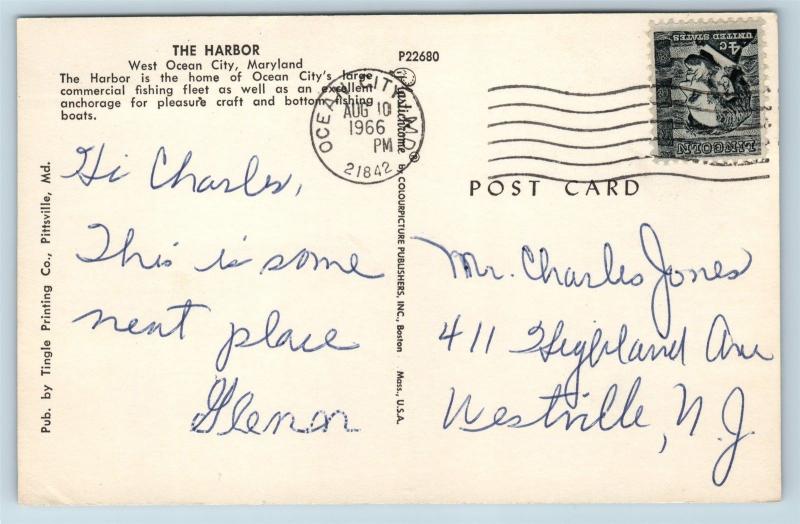 THE HARBOR
West Ocean City, Maryland
The Harbor is the home of Ocean City's large
commercial fishing fleet as well as an excellent
anchorage for pleasure craft and bottom fishing
boats.
P22680
OCEAN CITY, MD.
AUG 10
1966
PM
21842
UNITED STATES
4c
LINCOLN
POST CARD
Plastichrome ® by COLOURPICTURE PUBLISHERS, INC., Boston Mass., U.S.A.
Pub. by Tingle Printing Co., Pittsville, Md.
Hi Charles,
This is some
neat place
Glenon
Mr. Charles Jones
411 Highland Ave
Westville, N.J.